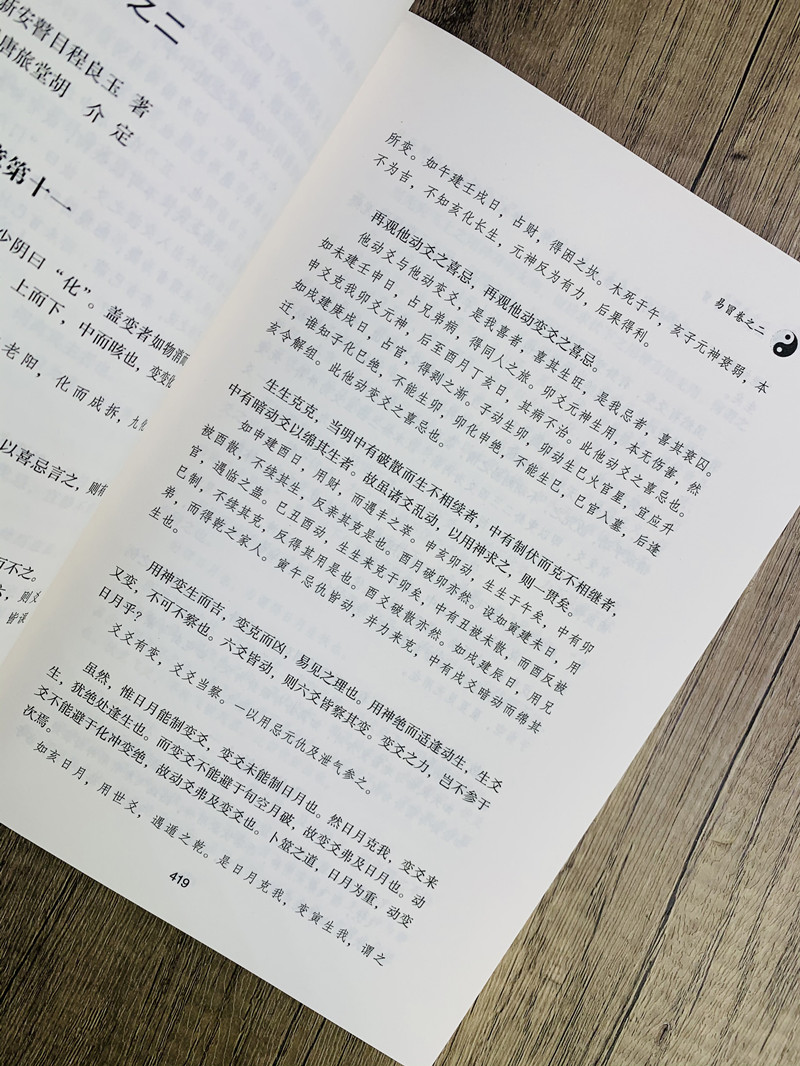 之二
新安瞽目程良玉 著
唐旅堂胡 介 定
第十一
少阴曰“化”。盖变者如物
上而下，中而晐也，变
老阳，化而成拆，九
以喜忌言之，则
不之。
易冒卷之二
所变。如午建壬戌日，占财，得困之坎。木死于午，亥子元神衰弱，本
不为吉，不知亥化长生，元神反为有力，后果得利。
再观他动爻之喜忌，再观他动变爻之喜忌。
他动爻与他动变爻，是我喜者，喜其生旺，是我忌者，喜其衰囚。
如未建壬申日，占兄弟病，得同人之旅。卯爻元神生用，本无伤害，然
申爻克我卯爻元神，后至酉月丁亥日，其病不治。此他动爻之喜忌也。
如戌建庚戌日，占官，得剥之渐。子动生卯，卯动生巳火官星，官应升
迁，谁知子化巳绝，不能生卯，卯化申绝，不能生巳，巳官入墓，后逢
亥令解组。此他动变爻之喜忌也。
生生克克，当明中有破散而生不相续者，中有制伏而克不相继者，
中有暗动爻以绵其生者。故虽诸爻乱动，以用神求之，则一贯矣。
如申建酉日，用财，而遇丰之萃。申亥卯动，生生于午矣，中有卯
被酉散，不续其生，反亲其克是也。酉月破卯亦然。设如寅建未日，用
官，遇临之蛊。巳丑酉动，生生来克于卯矣，中有丑被未散，而酉反被
巳制，不续其克，反得其用是也。酉爻破散亦然。如戌建辰日，用兄
弟，而得乾之家人。寅午忌仇皆动，并力来克，中有戌爻暗动而绵其
生也。
用神变生而吉，变克而凶，易见之理也。用神绝而适逢动生，生爻
又变，不可不察也。六爻皆动，则六爻皆察其变。变爻之力，岂不参于
日月乎？
爻爻有变，爻爻当察。一以用忌元仇及泄气参之。
虽然，惟日月能制变爻，变爻未能制日月也。然日月克我，变爻来
生，犹绝处逢生也。而变爻不能避于旬空月破，故变爻弗及日月也。动
爻不能避于化冲变绝，故动爻弗及变爻也。卜筮之道，日月为重，动变
次焉。
如亥日月，用世爻，遇遁之乾。是日月克我，变寅生我，谓之
419